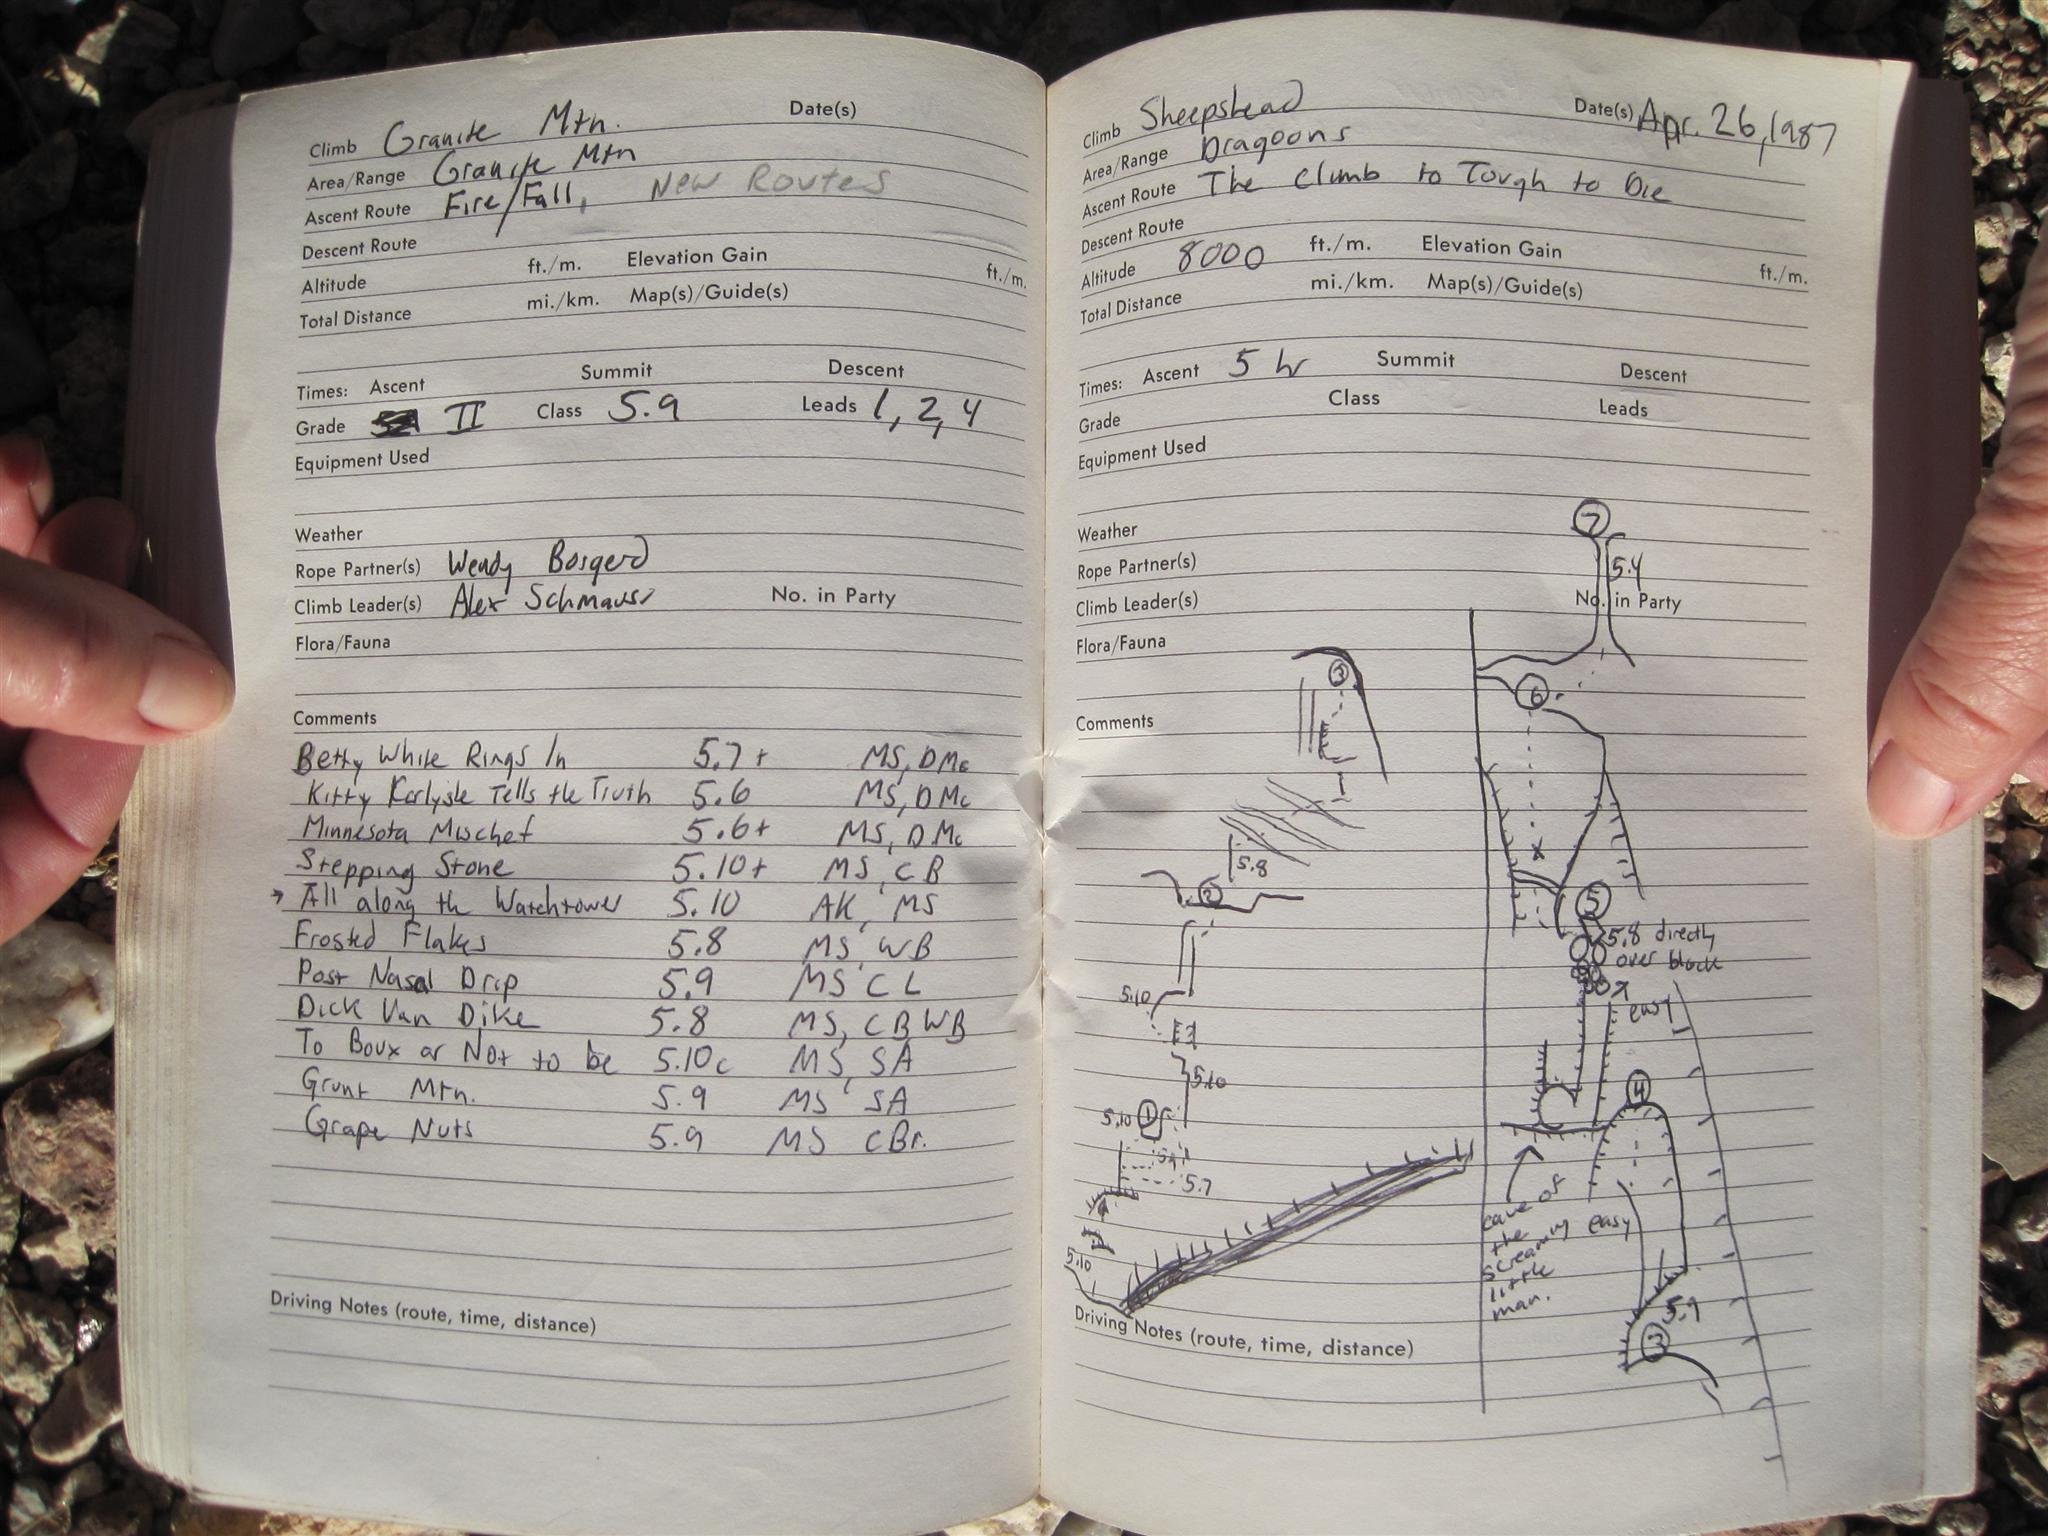 Climb Granite Mtn. Date(s)
Area/Range Granite Mtn
Ascent Route Fire/Fall, New Routes
Descent Route
Altitude ft./m. Elevation Gain ft./m.
Total Distance mi./km. Map(s)/Guide(s)
Times: Ascent Summit Descent
Grade II Class 5.9 Leads 1, 2, 4
Equipment Used
Weather
Rope Partner(s) Wendy Borgerd
Climb Leader(s) Alex No. in Party
Flora/Fauna
Comments
Betty White Rings In 5.7+ MS, DMc
Kitty Karlysle Tells the Truth 5.6 MS, DMc
Minnesota Mischef 5.6+ MS, DMc
Stepping Stone 5.10+ MS, CB
→ All along the Watchtower 5.10 AK, MS
Frosted Flakes 5.8 MS, WB
Post Nasal Drip 5.9 MS, CL
Dick Van Dike 5.8 MS, CB WB
To Boux or Not to be 5.10c MS, SA
Grunt Mtn. 5.9 MS, SA
Grape Nuts 5.9 MS CBr.
Driving Notes (route, time, distance)
Climb Sheepshead Date(s) Apr. 26, 1987
Area/Range Dragoons
Ascent Route The Climb to Tough to Die
Descent Route
Altitude 8000 ft./m. Elevation Gain ft./m.
Total Distance mi./km. Map(s)/Guide(s)
Times: Ascent 5 hr Summit Descent
Grade Class Leads
Equipment Used
7
Weather
Rope Partner(s) 5.4
Climb Leader(s) No. in Party
Flora/Fauna
3
6
Comments
5.8
x
2
5
5.8 directly
over block
5.10
easy
5.10
4
5.10 1
5.7
cave of
the
screaming
little
man.
easy
5.10
5.9
3
Driving Notes (route, time, distance)